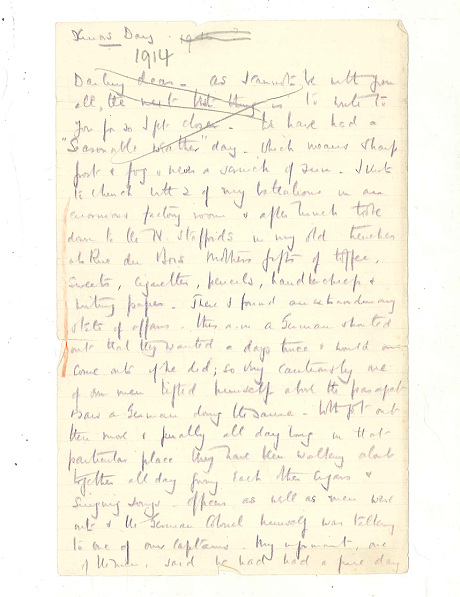 Xmas Day
1914
Darling dear - as I cannot be with you
all, the next best thing is to write to
you for so I get closer - We have had a
"Seasonable weather" day - which means sharp
frost & fog & never a scratch of sun. I went
to church with 2 of my battalions in an
enormous factory room & after lunch took
down to the N. Staffords in my old trenches
at Rue du Bois Mothers gifts of toffee,
sweets, cigarettes, pencils, handkerchiefs &
writing paper. There I found an extraordinary
state of affairs - this a.m. a German shouted
out that they wanted a days truce & would one
come out if he did; so very cautiously one
of our men lifted himself above the parapet
& saw a German doing the same - Both got out
then more & finally all day long in that
particular place they have been walking about
together all day giving each other cigars &
singing songs. Officers as well as men were
out & the German Colonel himself was talking
to one of our Captains. My informant, one
of the men, said he had had a fine day